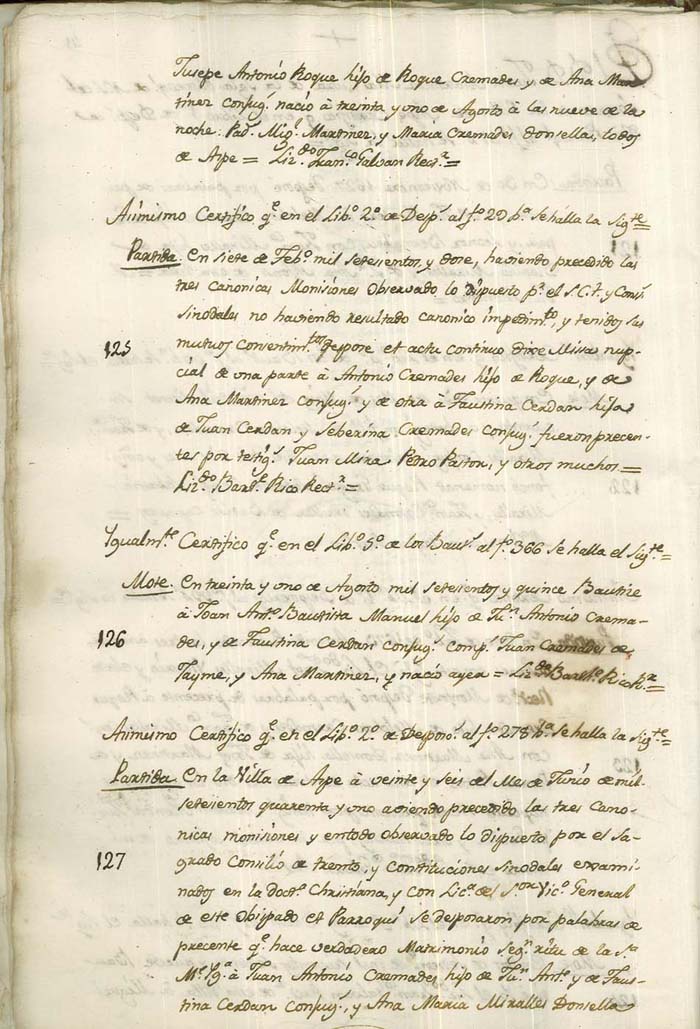 Jusepe Antonio Roque hijo de Roque Cremades y de Ana Mar
tinez conjug.s nació à treinta y uno de Agosto à las nueve de la
noche: Pad.s Mig.l Martinez, y Maria Cremades donsella, todos
de Aspe = Liz.do Fran.co Galvan Rect.r =
Asimismo Certifico q.e en el Lib.o 2.o de Desp.s al f.o 29 b.a se halla la Sig.te =
Partida. En siete de Feb.o mil setesientos, y dose, haviendo precedido las
tres canonicas Monisiones Observado lo dispuesto p.r el S.C.T. y Cons.
Sinodales no haviendo resultado canonico impedim.to, y tenidos sus
125 mutuos consentim.tos despose et actu continuo dixe Missa nup-
cial de una parte à Antonio Cremades hijo de Roque, y de
Ana Martinez Conjug.s y de otra à Faustina Cerdan hija
de Juan Cerdan y Seberina Cremades conjug.s fueron precen-
tes por testig.s Juan Mira Pedro Pastor, y otros muchos =
Liz.do Bar.me Rico Rect.r =
Ygualm.te Certifico q.e en el Lib.o 5.o de los Baut.s al f.o 366 se halla el Sig.te =
Mote. En treinta y uno de Agosto mil setesientos y quince Bautize
à Joan Ant.o Bautista Manuel hijo de Ju.n Antonio Crema-
126 des, y de Faustina Cerdan conjug.s comp.s Juan Cremades de
Jayme, y Ana Martinez, y nació ayer = Liz.do Bart.me Rico R.r =
Asimismo Certifico q.e en el Lib.o 2.o de Despos.s al f.o 278 b.a se halla la Sig.te
Partida. En la Villa de Aspe à veinte y seis del Mes de Junio de mil
setesientos quarenta y uno aviendo precedido las tres Cano-
nicas monisiones y en todo observado lo dispuesto por el Sa-
127 grado Consilio de trento, y constituciones sinodales exsami-
nados en la doct.a Christiana, y con Lic.a del S.or Vic.o General
de este Obispado et Parroqui se desposaron por palabras de
precente q.e hace verdadero Matrimonio Seg.n ritu de la S.ta
M.e Yg.a à Juan Antonio Cremades hijo de Ju.n Ant.o y de Faus-
tina Cerdan Conjug.s, y Ana Maria Miralles Donsella